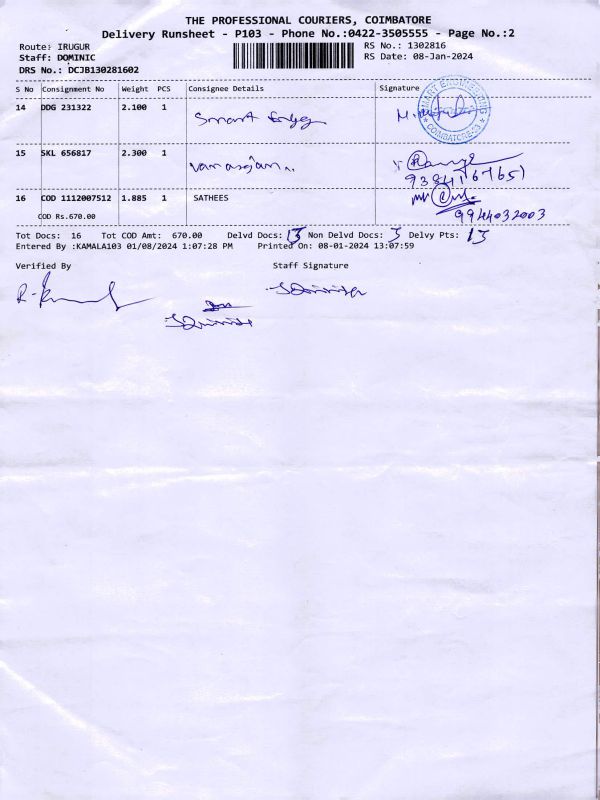 THE PROFESSIONAL COURIERS, COIMBATORE
Delivery Runsheet - P103 - Phone No.:0422-3505555 - Page No.:2
Route: IRUGUR RS No.: 1302816
Staff: DOMINIC RS Date: 08-Jan-2024
DRS No.: DCJB130281602
S No Consignment No Weight PCS Consignee Details Signature
14 DDG 231322 2.100 1 Smart
15 SKL 656817 2.300 1
9384116765
16 COD 1112007512 1.885 1 SATHEES
COD Rs.670.00 9944032003
Tot Docs: 16 Tot COD Amt: 670.00 Delvd Docs: 13 Non Delvd Docs: 3 Delvy Pts: 13
Entered By :KAMALA103 01/08/2024 1:07:28 PM Printed On: 08-01-2024 13:07:59
Verified By Staff Signature